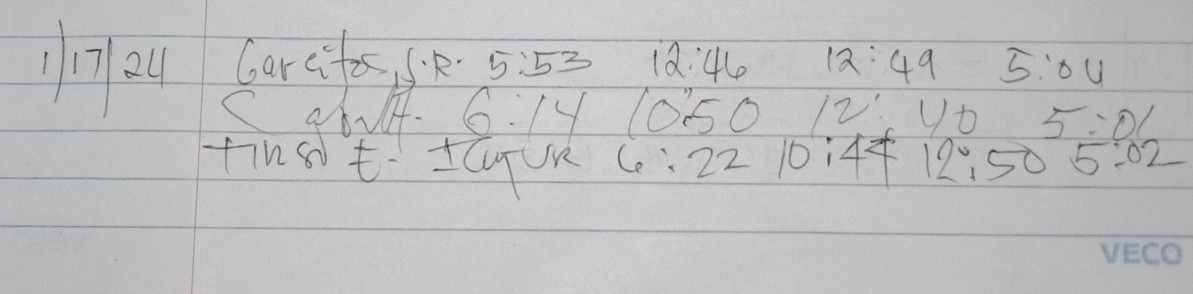 1/17/24 Garcitos, S.R. 5:53 12:46 12:49 5:04
6:14 10:50 12:40 5:01
E. 6:22 10:44 12:50 5:02
VECO